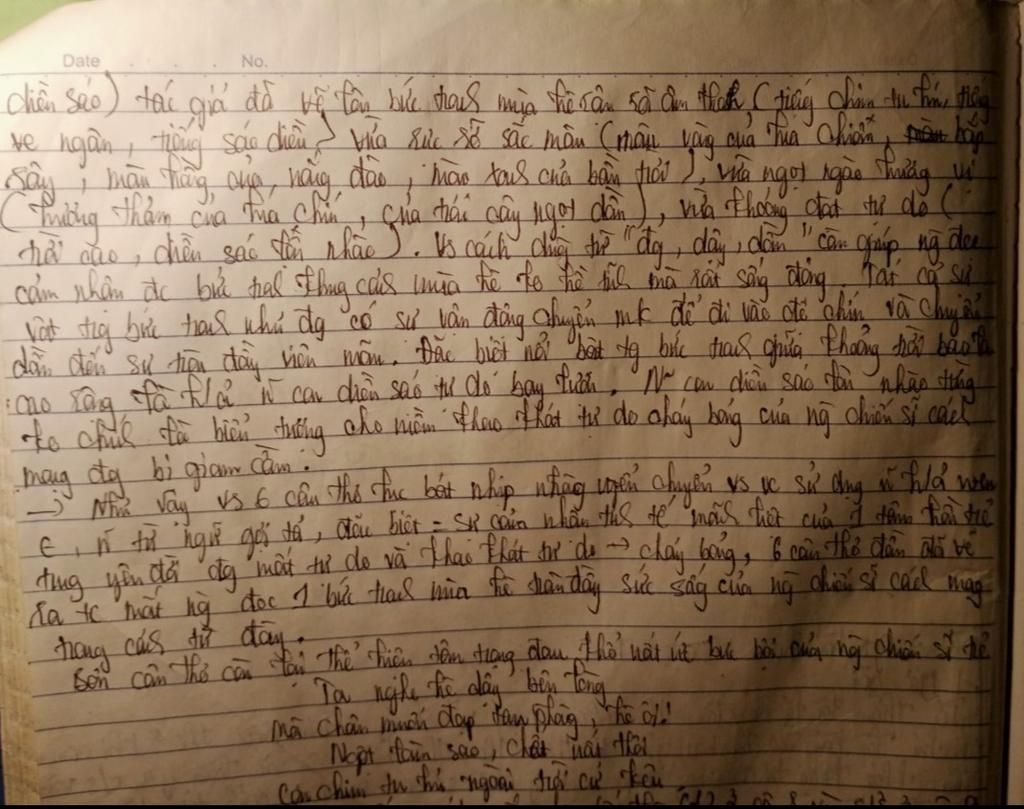 Date No.
diều sáo) tác giả đã vẽ lên bức tranh mùa hè rộn rã âm thanh (tiếng chim tu hú, tiếng
ve ngân, tiếng sáo diều) vừa rực rỡ sắc màu (màu vàng của lúa chiêm, bắp
rây, màu hồng của nắng đào, màu xanh của bầu trời), vừa ngọt ngào hương vị
(hương thơm của lúa chín, của trái cây ngọt dần), vừa khoáng đạt tự do (
trời cao, diều sáo lộn nhào). Vs cách dùng từ "đg, dậy, dần" càng giúp ng đọc
cảm nhận đc bức tranh khung cảnh mùa hè ko hề tĩnh mà rất sống động. Tất cả sự
vật trg bức tranh như đg có sự vận động chuyển mk để đi vào độ chín và chuyển
dần đến sự tròn đầy viên mãn. Đặc biệt nổi bật tg bức tranh giữa khoảng trời bao la
cao rộng là h/ả con diều sáo tự do bay lượn. con diều sáo lộn nhào từng
ko chính là biểu tượng cho niềm khao khát tự do cháy bỏng của ng chiến sĩ cách
mạng đg bị giam cầm.
→ Như vậy vs 6 câu thơ lục bát nhịp nhàng uyển chuyển vs vc sử dụng h/ả
từ ngữ gợi tả, đặc biệt = sự cảm nhận tinh tế mãnh liệt của 1 tâm hồn trẻ
trung yêu đời đg mất tự do và khao khát tự do → cháy bỏng, 6 câu thơ đầu đã vẽ
ra tc mắt ng đọc 1 bức tranh mùa hè tràn đầy sức sống của ng chiến sĩ cách mạng
trong cảnh tù đày.
Bốn câu thơ còn lại thể hiện tâm trạng đau khổ uất ức bực bội của ng chiến sĩ trẻ
Ta nghe hè dậy bên lòng
Mà chân muốn đạp tan phòng, hè ôi!
Ngột làm sao, chết uất thôi
Con chim tu hú ngoài trời cứ kêu